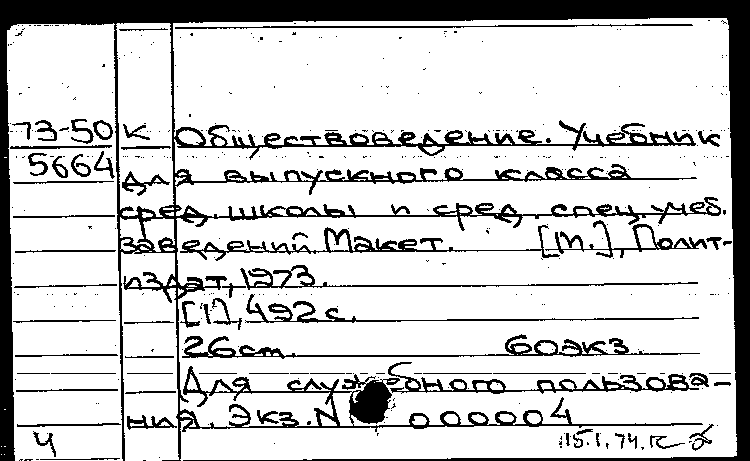 73-50 К Обществоведение. Учебник
5664 для выпускного класса
сред. школы и сред. спец. учеб.
заведений. Макет. [М.], Полит-
издат, 1973.
[1], 492 с.
26 cm. 60 экз.
Для служебного пользова-
ния. Экз. N 000004
Ч